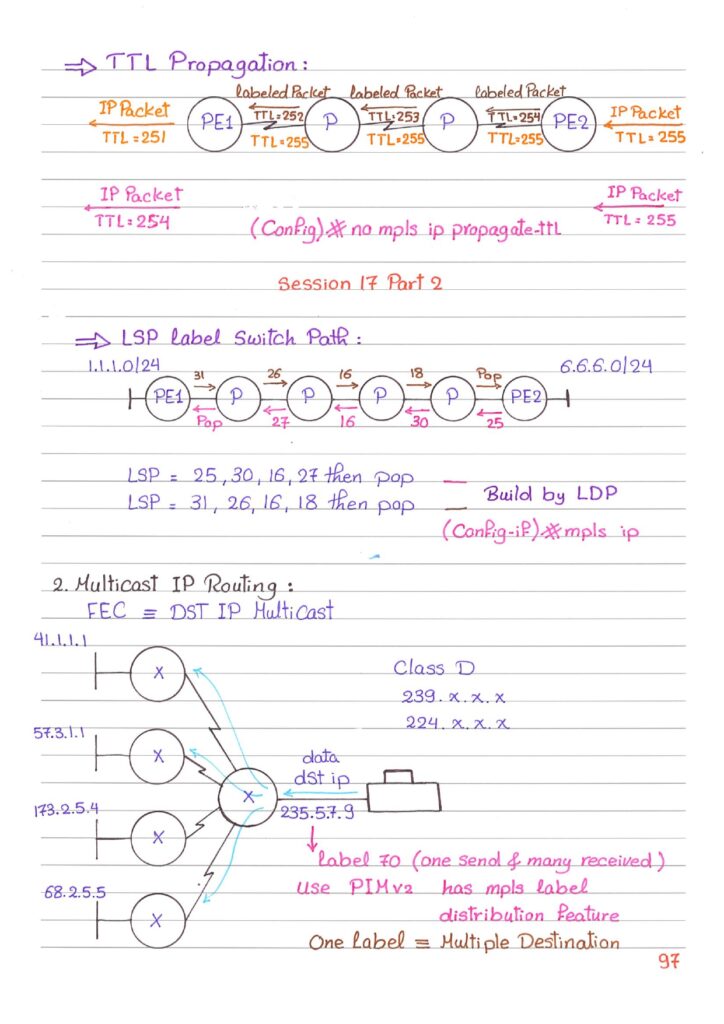 ⇒ TTL Propagation:
labeled Packet labeled Packet labeled Packet
IP Packet PE1 TTL=252 P TTL=253 P TTL=254 PE2 IP Packet
TTL=251 TTL=255 TTL=255 TTL=255 TTL=255
IP Packet IP Packet
TTL=254 TTL=255
(Config)# no mpls ip propagate-ttl
Session 17 Part 2
⇒ LSP label Switch Path:
1.1.1.0/24 6.6.6.0/24
31 26 16 18 Pop
PE1 P P P P PE2
Pop 27 16 30 25
LSP = 25, 30, 16, 27 then pop
LSP = 31, 26, 16, 18 then pop
Build by LDP
(Config-if)# mpls ip
2. Multicast IP Routing:
FEC ≡ DST IP MultiCast
41.1.1.1
X
Class D
239.x.x.x
224.x.x.x
57.3.1.1
X
data
dst ip
X
235.5.7.9
173.2.5.4
X
label 70 (one send & many received)
use PIMv2 has mpls label
distribution feature
68.2.5.5
X
One Label ≡ Multiple Destination
97